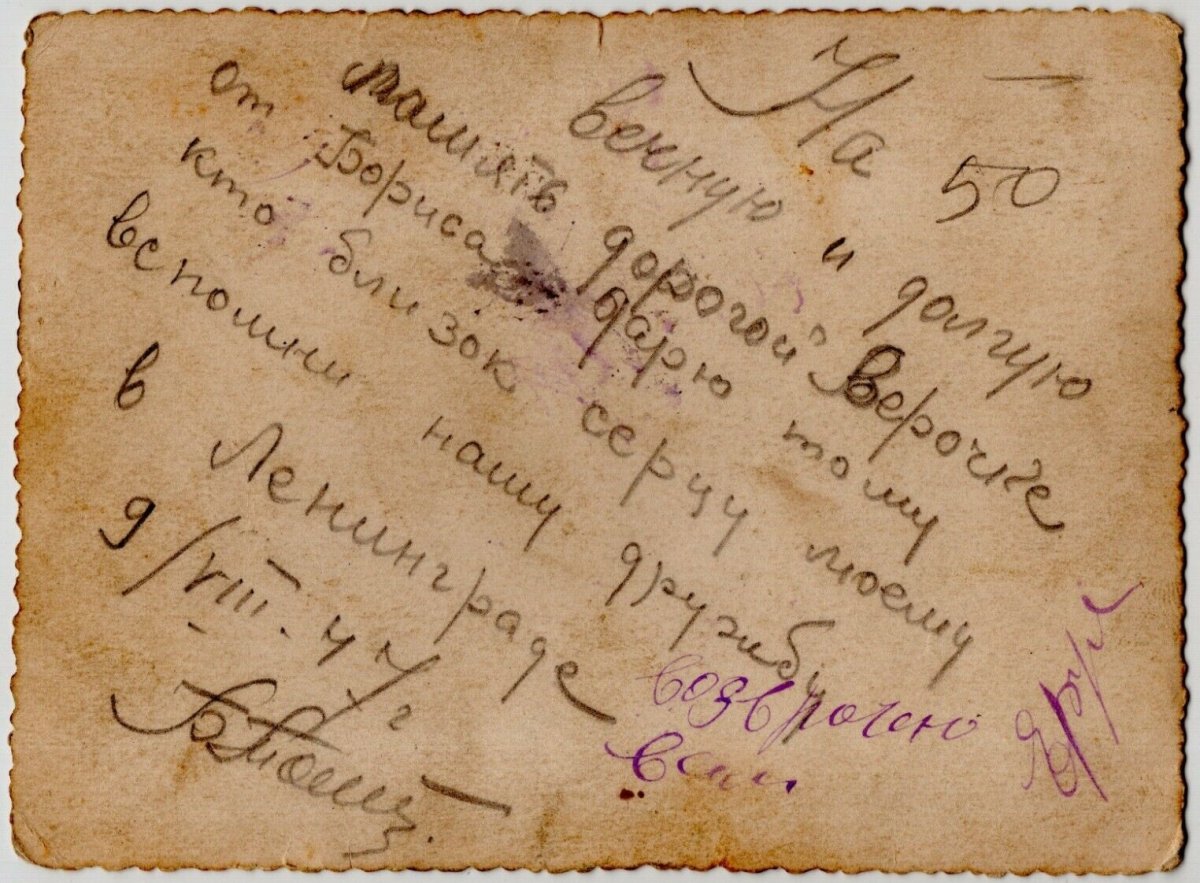 На
вечную и долгую
память дорогой Верочке
от Бориса дарю тому
кто близок серцу моему
вспомни нашу дружбу
в Ленинграде
9/VIII. 47 г
50